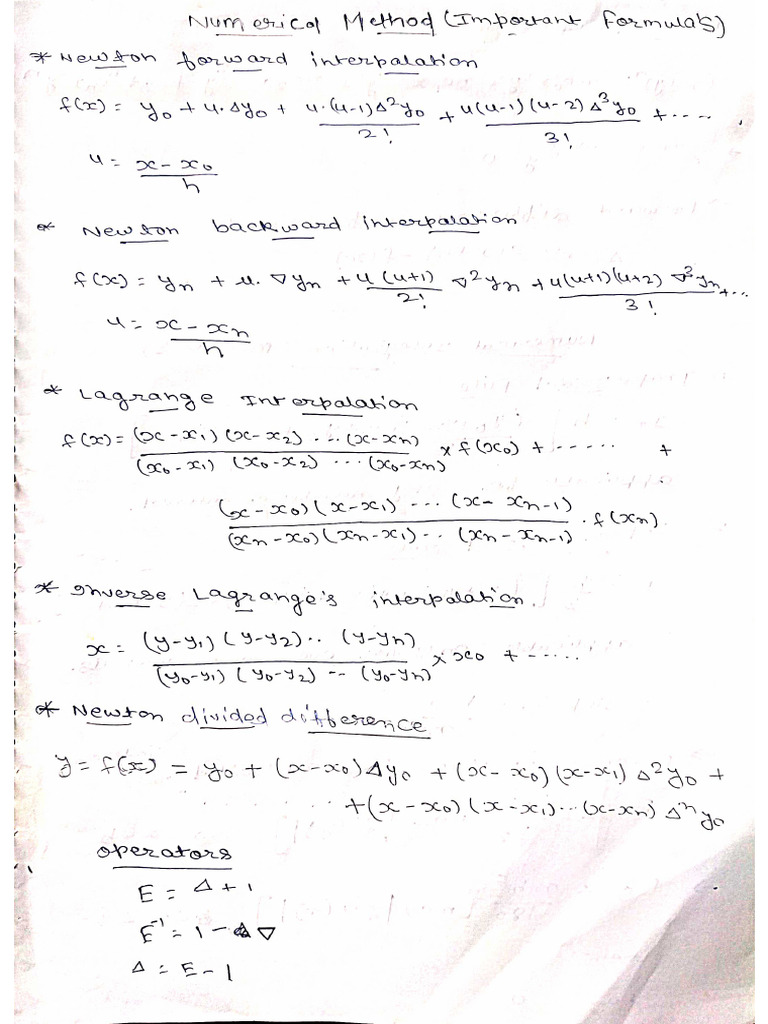 Numerical Method (Important Formula's)
* Newton forward interpalation
f(x) = y₀ + u.Δy₀ + u.(u-1)Δ²y₀/2! + u(u-1)(u-2)Δ³y₀/3! + ....
u = x - x₀/h
* Newton backward interpalation
f(x) = yₙ + u.∇yₙ + u(u+1)/2! ∇²yₙ + u(u+1)(u+2) ∇³yₙ/3! + ...
u = x - xₙ/h
* Lagrange Interpalation
f(x) = (x-x₁)(x-x₂)...(x-xₙ)/(x₀-x₁)(x₀-x₂)...(x₀-xₙ) × f(x₀) + ------ +
(x-x₀)(x-x₁)...(x-xₙ₋₁)/(xₙ-x₀)(xₙ-x₁)..(xₙ-xₙ₋₁) . f(xₙ)
* Inverse Lagrange's interpolation.
x = (y-y₁)(y-y₂)..(y-yₙ)/(y₀-y₁)(y₀-y₂)--(y₀-yₙ) × x₀ + -....
* Newton divided difference
y = f(x) = y₀ + (x-x₀)Δy₀ + (x-x₀)(x-x₁)Δ²y₀ +
+(x-x₀)(x-x₁)...(x-xₙ)Δⁿy₀
operators
E = Δ+1
E⁻¹ = 1-∇
Δ = E-1